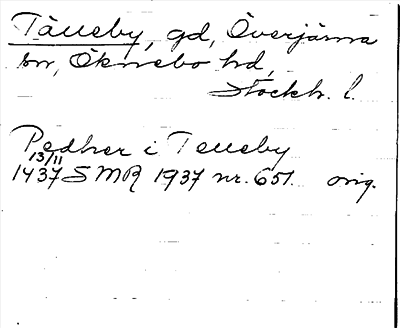 Tälleby, gd, Överjärna
sn, Öknebo hd,
Stockh. l.
Pedher i Telleby
13/11
1437 SMR 1937 nr. 651. orig.